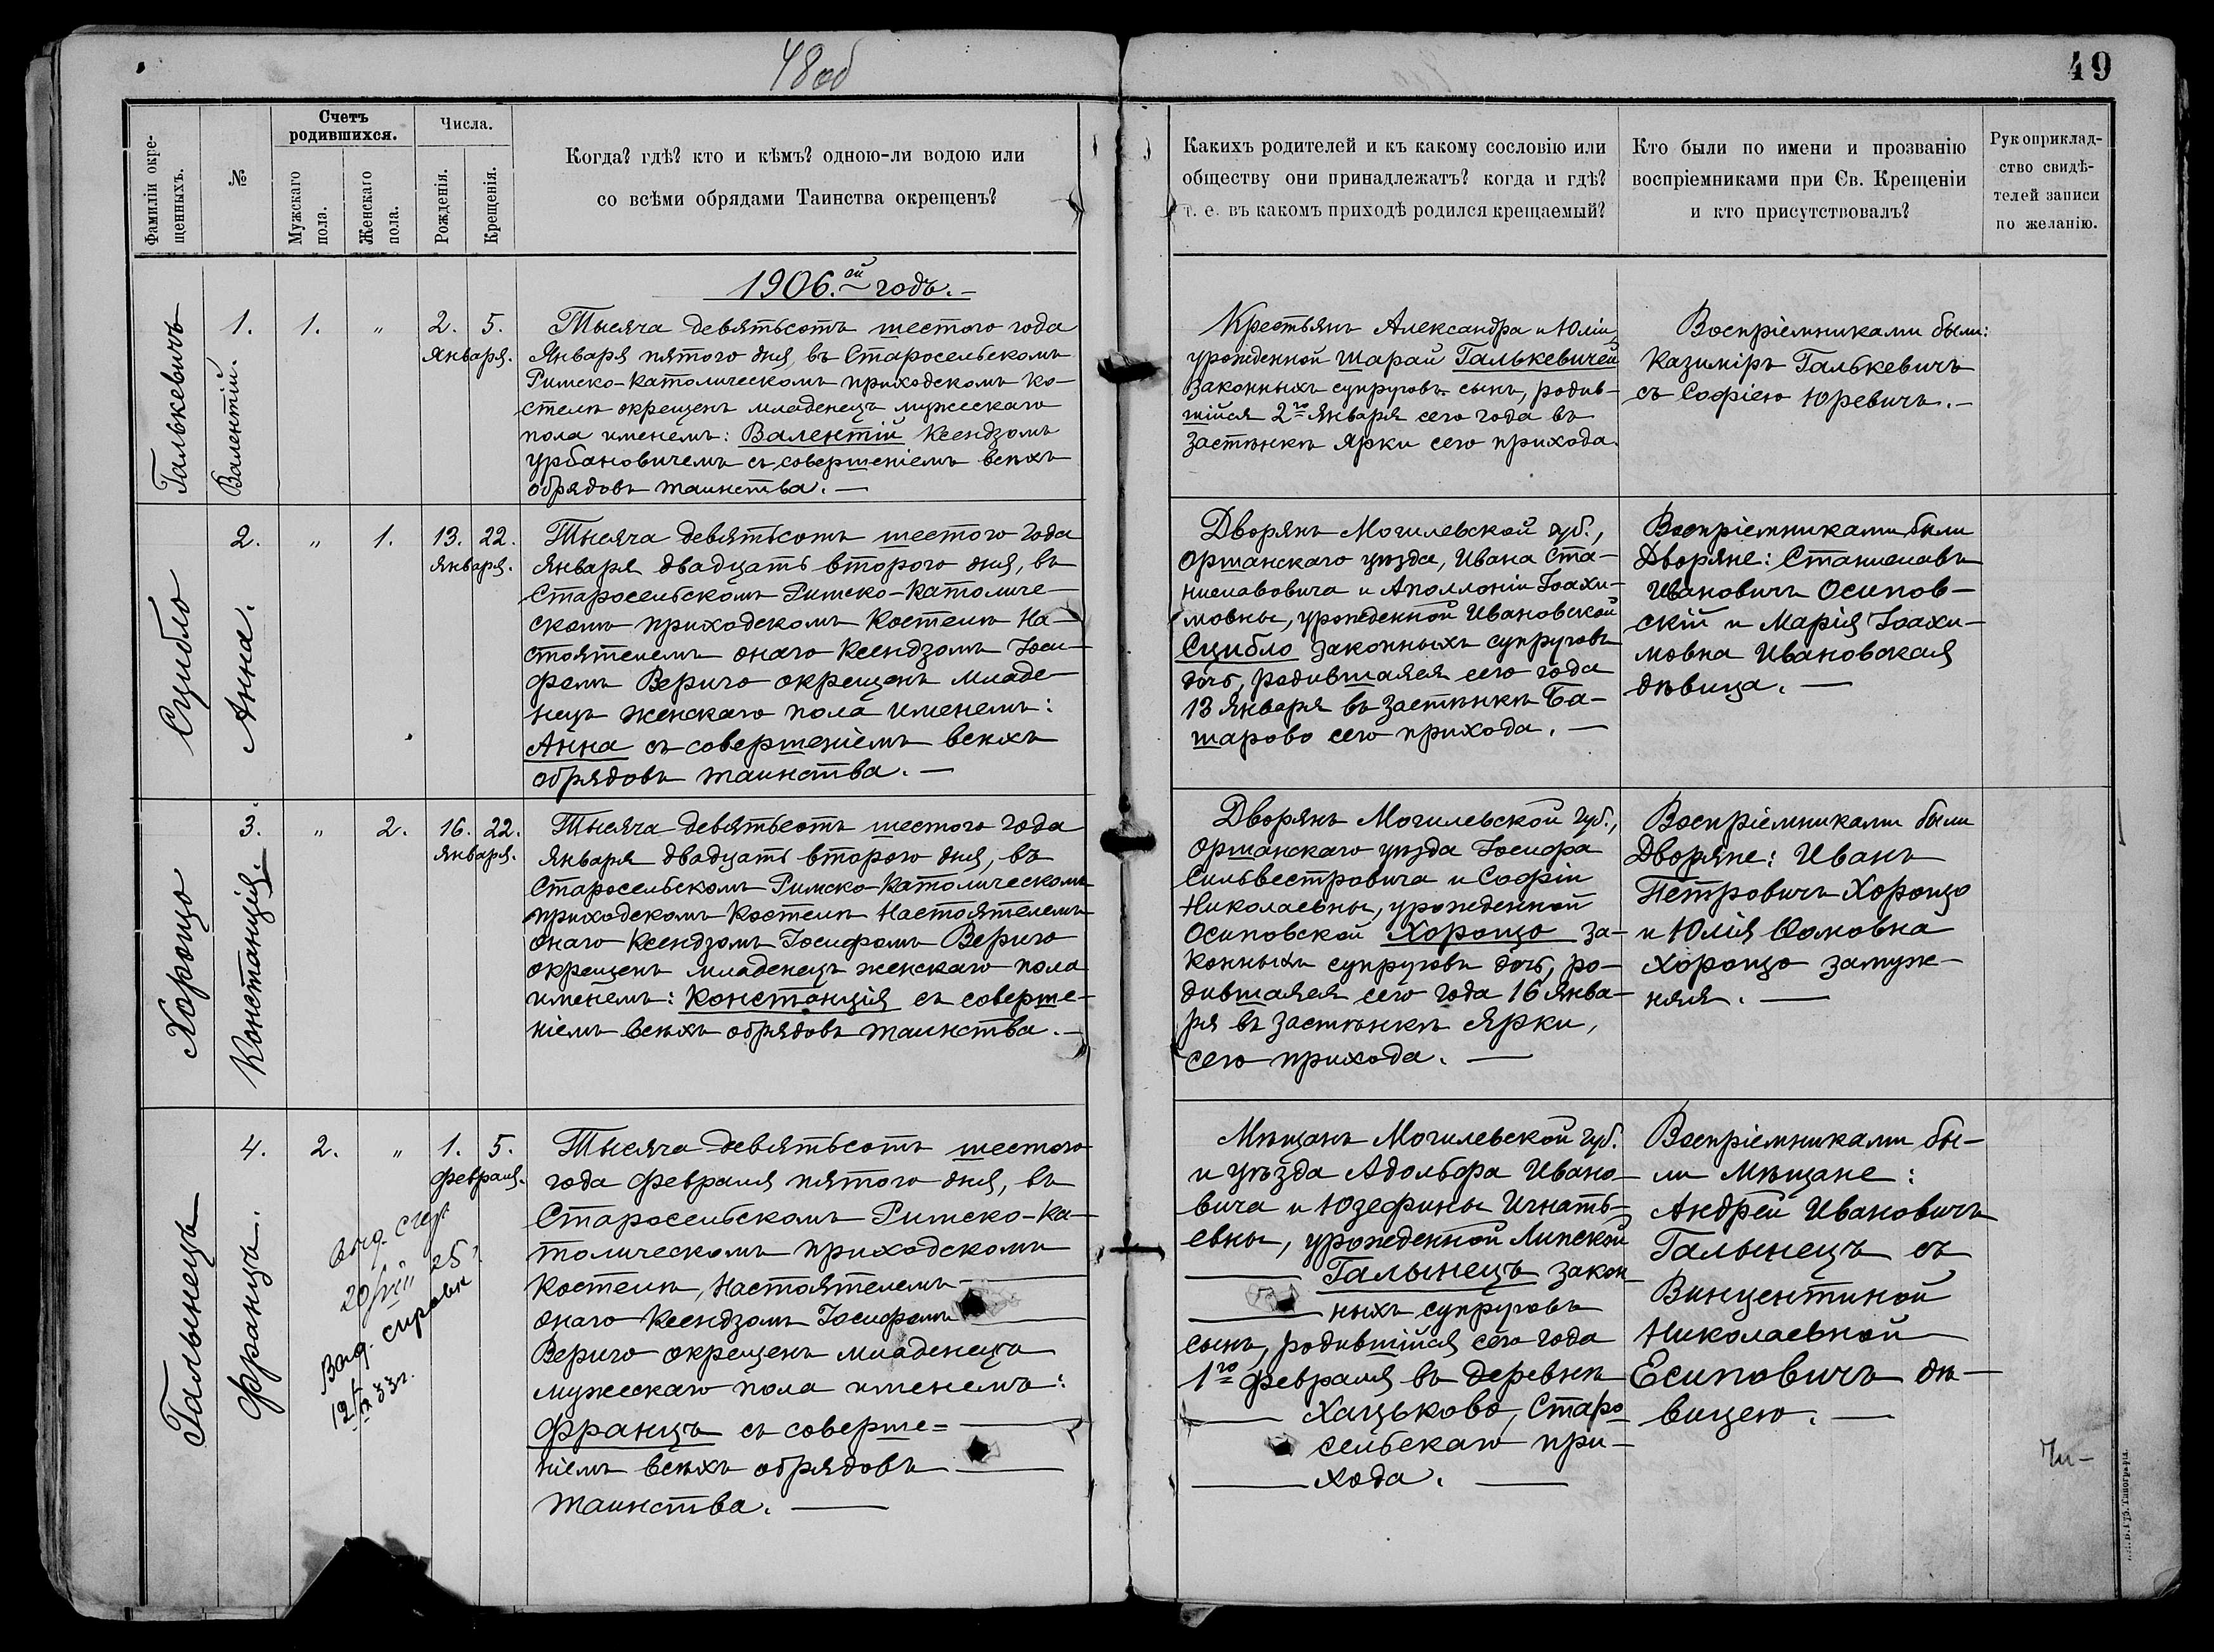 48об
49
Фамиліи окре-
щенныхъ.
№
Счетъ
родившихся.
Мужскаго
пола.
Женскаго
пола.
Числа.
Рожденія.
Крещенія.
Когда? гдѣ? кто и кѣмъ? одною-ли водою или
со всѣми обрядами Таинства окрещенъ?
Какихъ родителей и къ какому сословію или
обществу они принадлежатъ? когда и гдѣ?
т. е. въ какомъ приходѣ родился крещаемый?
Кто были по имени и прозванію
воспріемниками при Св. Крещеніи
и кто присутствовалъ?
Рукоприклад-
ство свидѣ-
телей записи
по желанію.
1906.ой годъ.—
Галькевичъ
1.
Валентій.
1.
"
2. 5.
Января.
Тысяча девятьсотъ шестого года
Января пятого дня, въ Старосельскомъ
Римско-Католическомъ приходскомъ ко-
стелѣ окрещенъ младенецъ мужескаго
пола именемъ: Валентій Ксендзомъ
Урбановичемъ съ совершеніемъ всѣхъ
обрядовъ таинства.—
Крестьянъ Александра и Юліи
урожденной Шарай Галькевичей
законныхъ супруговъ сынъ, родив-
шійся 2го Января сего года въ
застѣнкѣ Ярки сего прихода.
Воспріемниками были:
Казиміръ Галькевичъ
съ Софіею Юревичъ.—
Сцибло
2.
Анна.
"
1.
13. 22.
Января.
Тысяча девятьсотъ шестого года
Января двадцать второго дня, въ
Старосельскомъ Римско-Католиче-
скомъ приходскомъ Костелѣ На-
стоятелемъ онаго Ксендзомъ Іоси-
фомъ Вериго окрещенъ младе-
нецъ женскаго пола именемъ:
Анна съ совершеніемъ всѣхъ
обрядовъ таинства.—
Дворянъ Могилевской губ.,
Оршанскаго уѣзда, Ивана Ста-
ниславовича и Аполлоніи Іоахи-
мовны, урожденной Ивановской
Сцибло законныхъ супруговъ
дочь, родившаяся сего года
13 Января въ застѣнкѣ Ба-
шарово сего прихода.—
Воспріемниками были
Дворяне: Станиславъ
Ивановичъ Осипов-
скій и Марія Іоахи-
мовна Ивановская
дѣвица.—
Хорощо
3.
Констанція.
"
2.
16. 22.
Января.
Тысяча девятьсотъ шестого года
Января двадцать второго дня, въ
Старосельскомъ Римско-Католическомъ
приходскомъ Костелѣ Настоятелемъ
онаго Ксендзомъ Іосифомъ Вериго
окрещенъ младенецъ женскаго пола
именемъ: Констанція съ соверше-
ніемъ всѣхъ обрядовъ таинства.—
Дворянъ Могилевской губ.,
Оршанскаго уѣзда Іосифа
Сильвестровича и Софіи
Николаевны, урожденной
Осиповской Хорощо за-
конныхъ супруговъ дочь, ро-
дившаяся сего года 16 Янва-
ря въ застѣнкѣ Ярки,
сего прихода.—
Воспріемниками были
Дворяне: Иванъ
Петровичъ Хорощо
и Юлія Ѳомовна
Хорощо замуж-
няя.—
Галынецъ
4.
Францъ.
2.
"
1. 5.
Февраля.
20/VIII 25г.
Выд. справк
12/IX 33г.
Тысяча девятьсотъ шестого
года Февраля пятого дня, въ
Старосельскомъ Римско-Ка-
толическомъ приходскомъ
Костелѣ, Настоятелемъ—
онаго Ксендзомъ Іосифомъ
Вериго окрещенъ младенецъ
мужескаго пола именемъ:
Францъ съ соверше=
ніемъ всѣхъ обрядовъ—
таинства.—
Мѣщанъ Могилевской губ.
и уѣзда Адольфа Ивано-
вича и Юзефины Игнать-
евны, урожденной Липской
Галынецъ закон-
ныхъ супруговъ
сынъ, родившійся сего года
1го Февраля въ деревнѣ
Хацьково, Старо-
сельскаго при-
хода.—
Воспріемниками бы-
ли Мѣщане:
Андрей Ивановичъ
Галынецъ съ
Винцентиной
Николаевной
Есиповичъ дѣ-
вицею.—